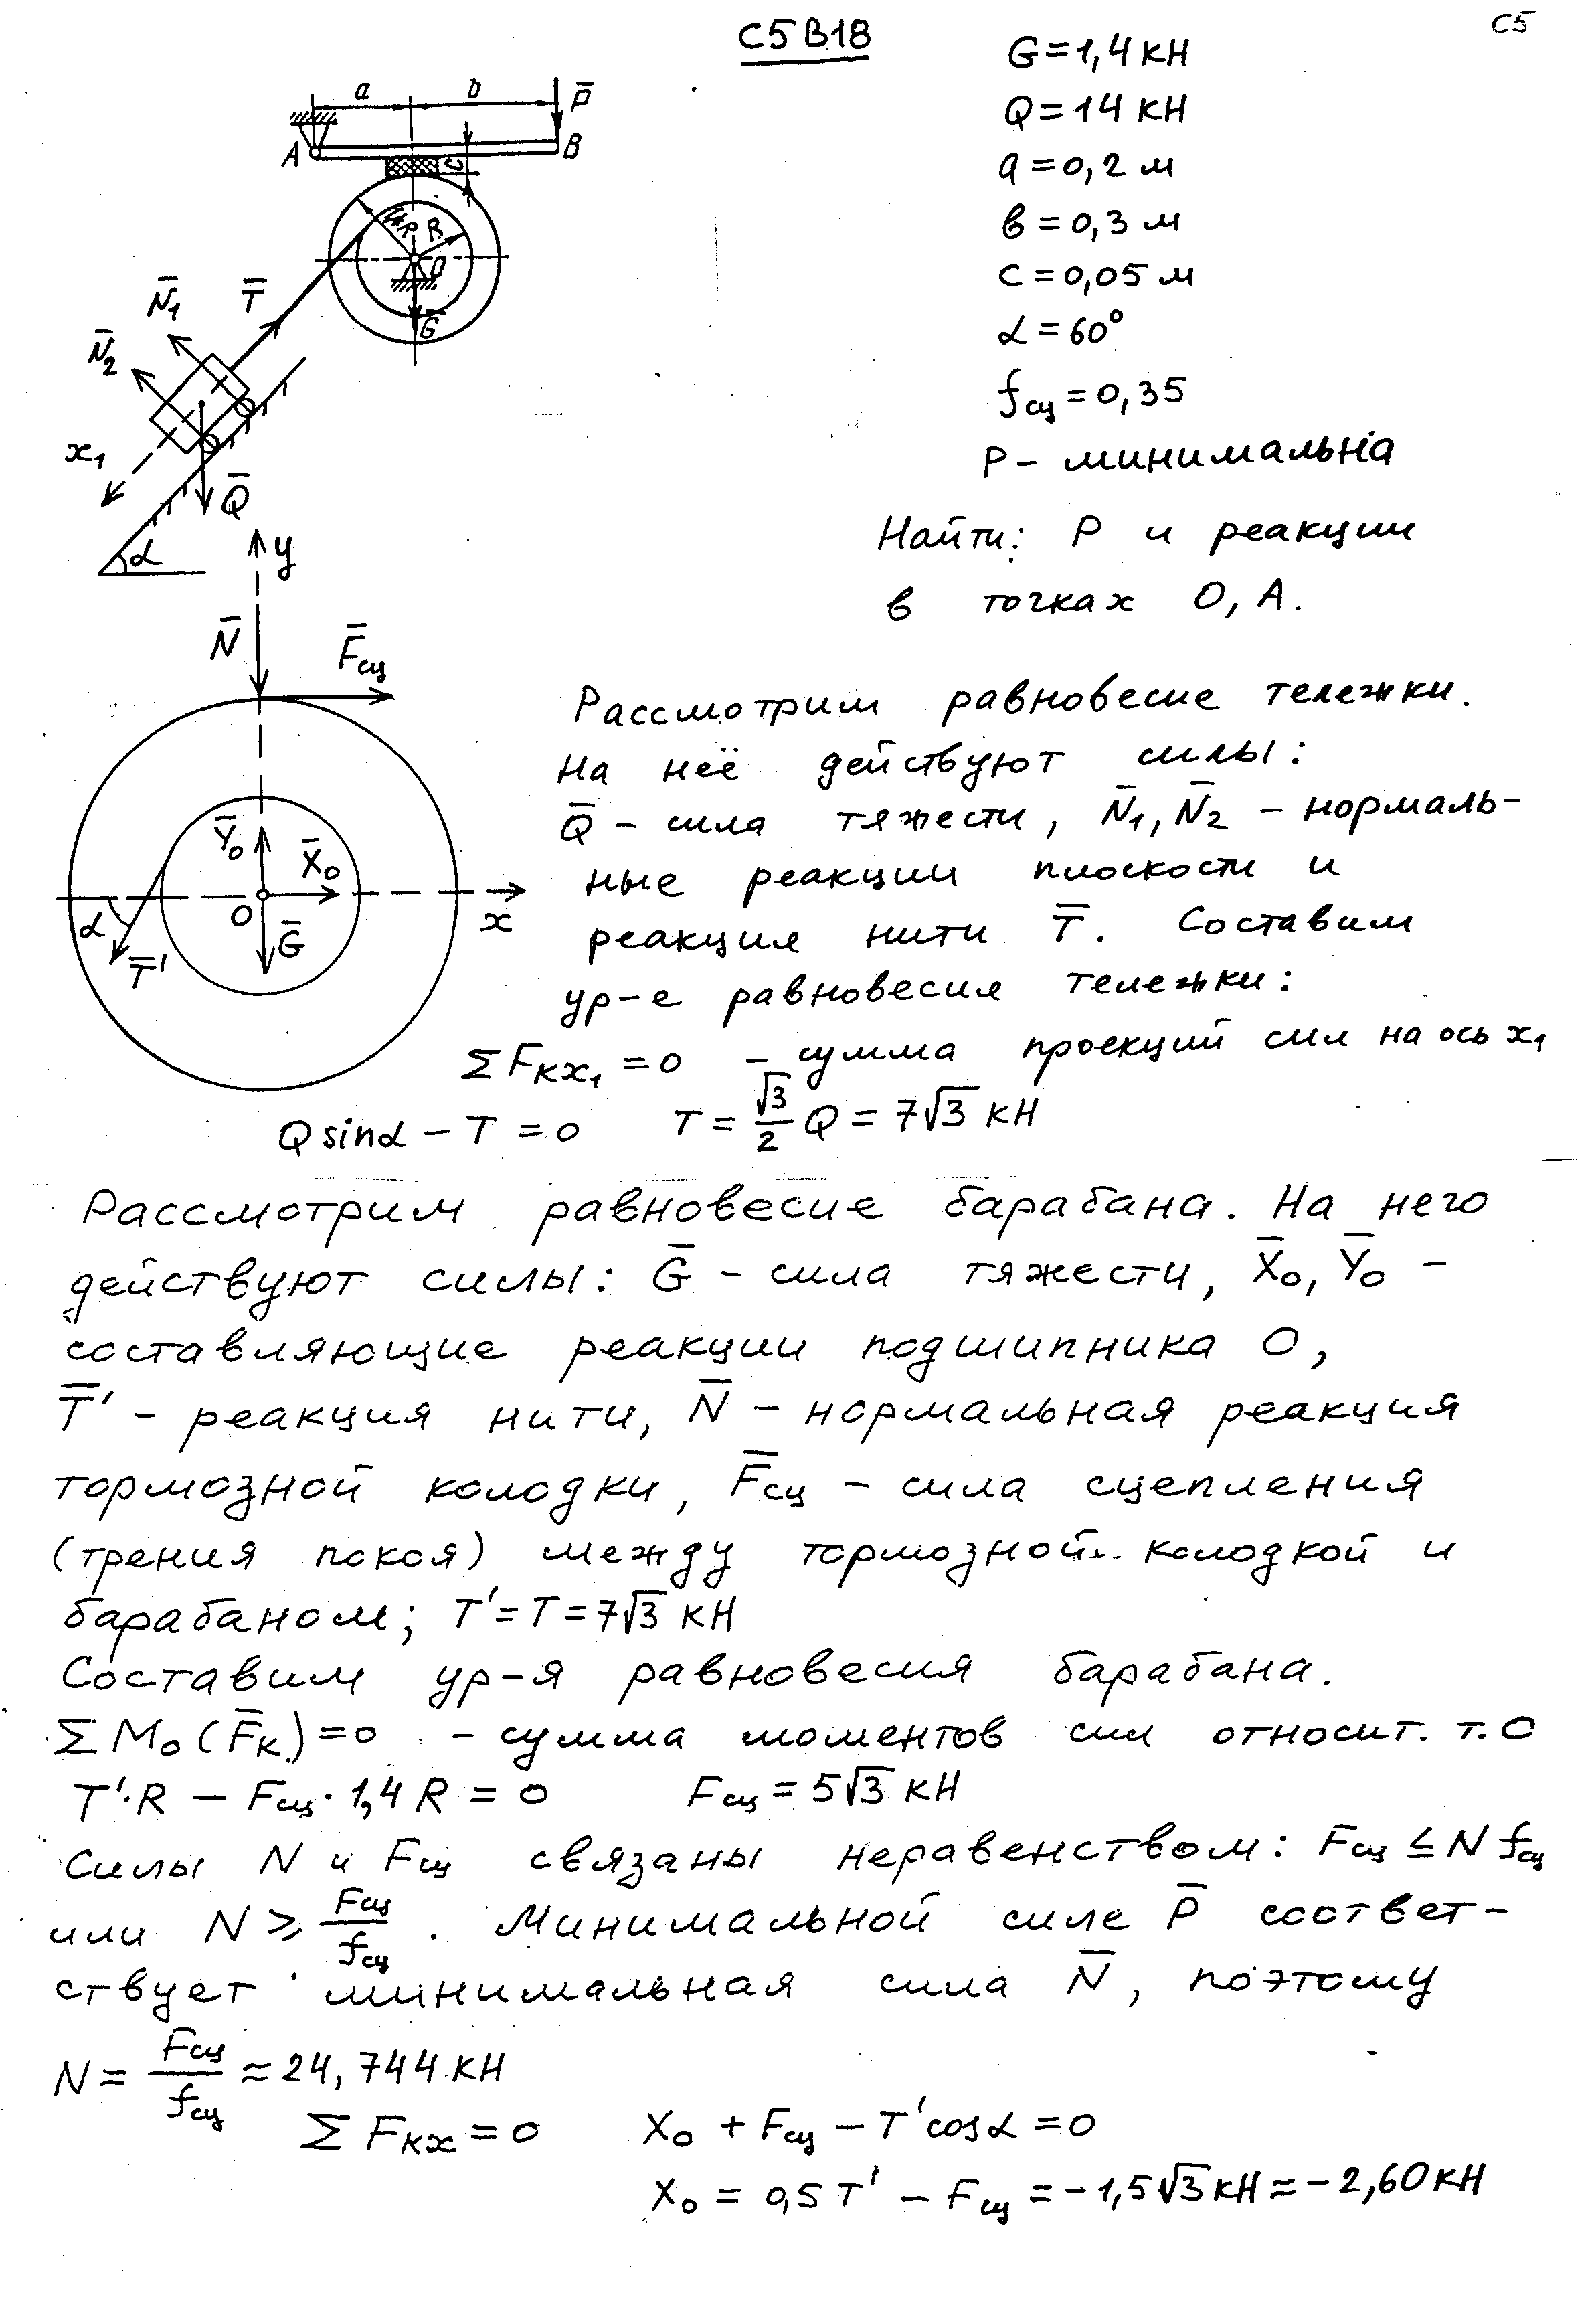 С5
С5 В18
G=1,4 кН
Q=14 кН
a=0,2 м
в=0,3 м
c=0,05 м
α=60°
fсц=0,35
P – минимальна
Найти: P и реакции
в точках O, A.
a b P̄
A B
c
R
O
Ḡ
N̄1 T̄
N̄2
x1
Q̄
α
y
N̄ F̄сц
Ȳo X̄o
α O Ḡ x
T̄'
Рассмотрим равновесие тележки.
На неё действуют силы:
Q̄ – сила тяжести, N̄1, N̄2 – нормаль-
ные реакции плоскости и
реакция нити T̄. Составим
ур-е равновесия тележки:
ΣFкx1 = 0 – сумма проекций сил на ось x1
Q sinα – T = 0 T = √3/2 Q = 7√3 кН
Рассмотрим равновесие барабана. На него
действуют силы: Ḡ – сила тяжести, X̄o, Ȳo –
составляющие реакции подшипника O,
T̄' – реакция нити, N̄ – нормальная реакция
тормозной колодки, F̄сц – сила сцепления
(трения покоя) между тормозной колодкой и
барабаном; T' = T = 7√3 кН
Составим ур-я равновесия барабана.
ΣMo(F̄к) = 0 – сумма моментов сил относит. т. O
T'·R – Fсц·1,4R = 0 Fсц = 5√3 кН
Силы N и Fсц связаны неравенством: Fсц ≤ N fсц
или N ≥ Fсц/fсц. Минимальной силе P̄ соответ-
ствует минимальная сила N̄, поэтому
N = Fсц/fсц ≈ 24,744 кН
ΣFкx = 0 Xo + Fсц – T'cosα = 0
Xo = 0,5T' – Fсц = –1,5√3 кН ≈ –2,60 кН